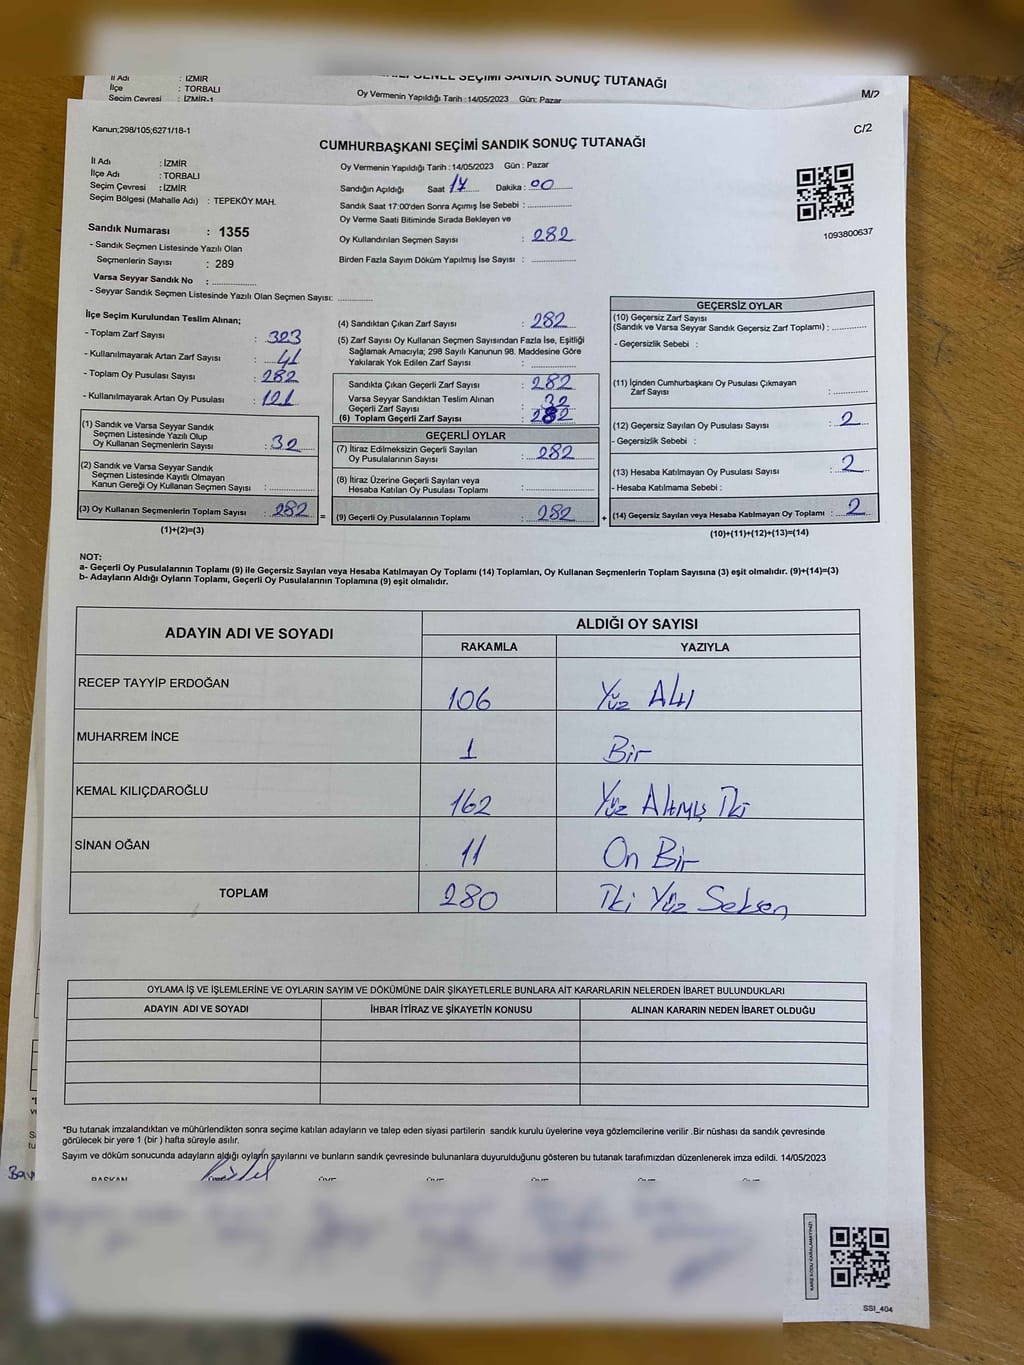 GENEL SEÇİMİ SANDIK SONUÇ TUTANAĞI
İl Adı : İZMİR
İlçe : TORBALI
Seçim Çevresi : İZMİR-1
Oy Vermenin Yapıldığı Tarih :14/05/2023 Gün: Pazar
M/2
Kanun;298/105;6271/18-1
C/2
CUMHURBAŞKANI SEÇİMİ SANDIK SONUÇ TUTANAĞI
İl Adı : İZMİR
İlçe Adı : TORBALI
Seçim Çevresi : İZMİR
Seçim Bölgesi (Mahalle Adı) : TEPEKÖY MAH.
Sandık Numarası : 1355
- Sandık Seçmen Listesinde Yazılı Olan
Seçmenlerin Sayısı : 289
Varsa Seyyar Sandık No :
- Seyyar Sandık Seçmen Listesinde Yazılı Olan Seçmen Sayısı:
Oy Vermenin Yapıldığı Tarih : 14/05/2023 Gün : Pazar
Sandığın Açıldığı Saat 17 Dakika : 00
Sandık Saat 17:00'den Sonra Açımış İse Sebebi :
Oy Verme Saati Bitiminde Sırada Bekleyen ve
Oy Kullandırılan Seçmen Sayısı : 282
Birden Fazla Sayım Döküm Yapılmış İse Sayısı :
1093800637
İlçe Seçim Kurulundan Teslim Alınan;
- Toplam Zarf Sayısı : 323
- Kullanılmayarak Artan Zarf Sayısı : 41
- Toplam Oy Pusulası Sayısı : 282
- Kullanılmayarak Artan Oy Pusulası : 121
(1) Sandık ve Varsa Seyyar Sandık
Seçmen Listesinde Yazılı Olup
Oy Kullanan Seçmenlerin Sayısı : 32
(2) Sandık ve Varsa Seyyar Sandık
Seçmen Listesinde Kayıtlı Olmayan
Kanun Gereği Oy Kullanan Seçmen Sayısı :
(3) Oy Kullanan Seçmenlerin Toplam Sayısı : 282 =
(1)+(2)=(3)
(4) Sandıktan Çıkan Zarf Sayısı : 282
(5) Zarf Sayısı Oy Kullanan Seçmen Sayısından Fazla İse, Eşitliği
Sağlamak Amacıyla; 298 Sayılı Kanunun 98. Maddesine Göre
Yakılarak Yok Edilen Zarf Sayısı :
Sandıkta Çıkan Geçerli Zarf Sayısı : 282
Varsa Seyyar Sandıktan Teslim Alınan
Geçerli Zarf Sayısı : 32
(6) Toplam Geçerli Zarf Sayısı : 282
GEÇERLİ OYLAR
(7) İtiraz Edilmeksizin Geçerli Sayılan
Oy Pusulalarının Sayısı : 282
(8) İtiraz Üzerine Geçerli Sayılan veya
Hesaba Katılan Oy Pusulası Toplamı :
(9) Geçerli Oy Pusulalarının Toplamı : 282 +
GEÇERSİZ OYLAR
(10) Geçersiz Zarf Sayısı
(Sandık ve Varsa Seyyar Sandık Geçersiz Zarf Toplamı) :
- Geçersizlik Sebebi :
(11) İçinden Cumhurbaşkanı Oy Pusulası Çıkmayan
Zarf Sayısı :
(12) Geçersiz Sayılan Oy Pusulası Sayısı : 2
- Geçersizlik Sebebi :
(13) Hesaba Katılmayan Oy Pusulası Sayısı : 2
- Hesaba Katılmama Sebebi :
(14) Geçersiz Sayılan veya Hesaba Katılmayan Oy Toplamı : 2
(10)+(11)+(12)+(13)=(14)
NOT:
a- Geçerli Oy Pusulalarının Toplamı (9) ile Geçersiz Sayılan veya Hesaba Katılmayan Oy Toplamı (14) Toplamları, Oy Kullanan Seçmenlerin Toplam Sayısına (3) eşit olmalıdır. (9)+(14)=(3)
b- Adayların Aldığı Oyların Toplamı, Geçerli Oy Pusulalarının Toplamına (9) eşit olmalıdır.
ADAYIN ADI VE SOYADI
ALDIĞI OY SAYISI
RAKAMLA YAZIYLA
RECEP TAYYİP ERDOĞAN 106 Yüz Altı
MUHARREM İNCE 1 Bir
KEMAL KILIÇDAROĞLU 162 Yüz Altmış İki
SİNAN OĞAN 11 On Bir
TOPLAM 280 İki Yüz Seksen
OYLAMA İŞ VE İŞLEMLERİNE VE OYLARIN SAYIM VE DÖKÜMÜNE DAİR ŞİKAYETLERLE BUNLARA AİT KARARLARIN NELERDEN İBARET BULUNDUKLARI
ADAYIN ADI VE SOYADI İHBAR İTİRAZ VE ŞİKAYETİN KONUSU ALINAN KARARIN NEDEN İBARET OLDUĞU
*Bu tutanak imzalandıktan ve mühürlendikten sonra seçime katılan adayların ve talep eden siyasi partilerin sandık kurulu üyelerine veya gözlemcilerine verilir .Bir nüshası da sandık çevresinde
görülecek bir yere 1 (bir ) hafta süreyle asılır.
Sayım ve döküm sonucunda adayların aldığı oyların sayılarını ve bunların sandık çevresinde bulunanlara duyurulduğunu gösteren bu tutanak tarafımızdan düzenlenerek imza edildi. 14/05/2023
BAŞKAN ÜYE ÜYE ÜYE ÜYE ÜYE
SSI_404